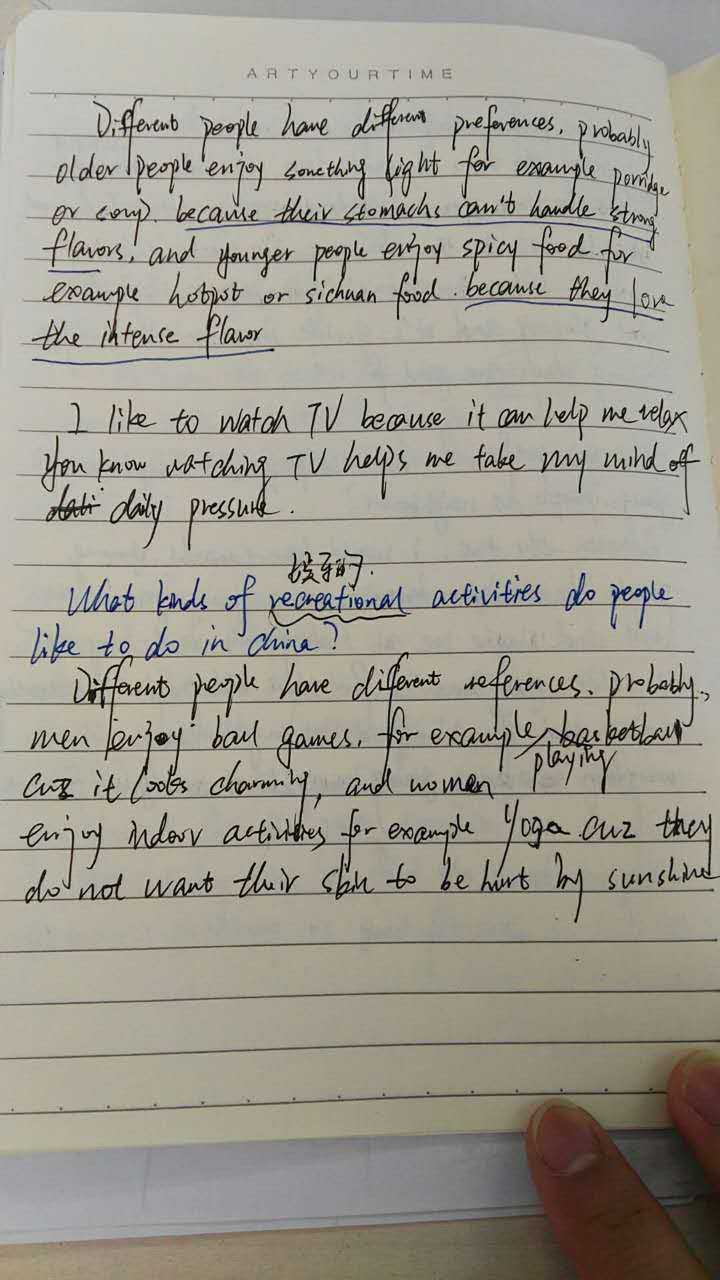 ARTYOURTIME
Different people have different preferences, probably
older people enjoy something light for example porridge
or soup. because their stomachs can't handle strong
flavors, and younger people enjoy spicy food for
example hotpot or sichuan food. because they love
the intense flavor
I like to watch TV because it can help me relax
You know watching TV helps me take my mind off
daily pressure.
娱乐的.
What kinds of recreational activities do people
like to do in china?
Different people have different references. Probably,
men enjoy ball games, for example basketball
playing
cuz it looks charming, and women
enjoy indoor activities for example Yoga cuz they
do not want their skin to be hurt by sunshine